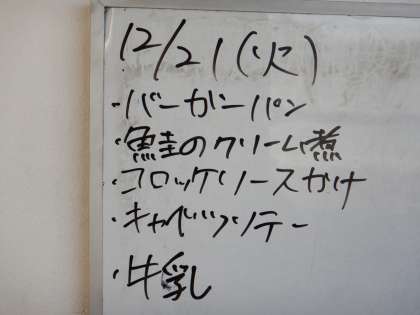 12/21(火)
・バーガーパン
・鮭のクリーム煮
・コロッケソースかけ
・キャベツソテー
・牛乳